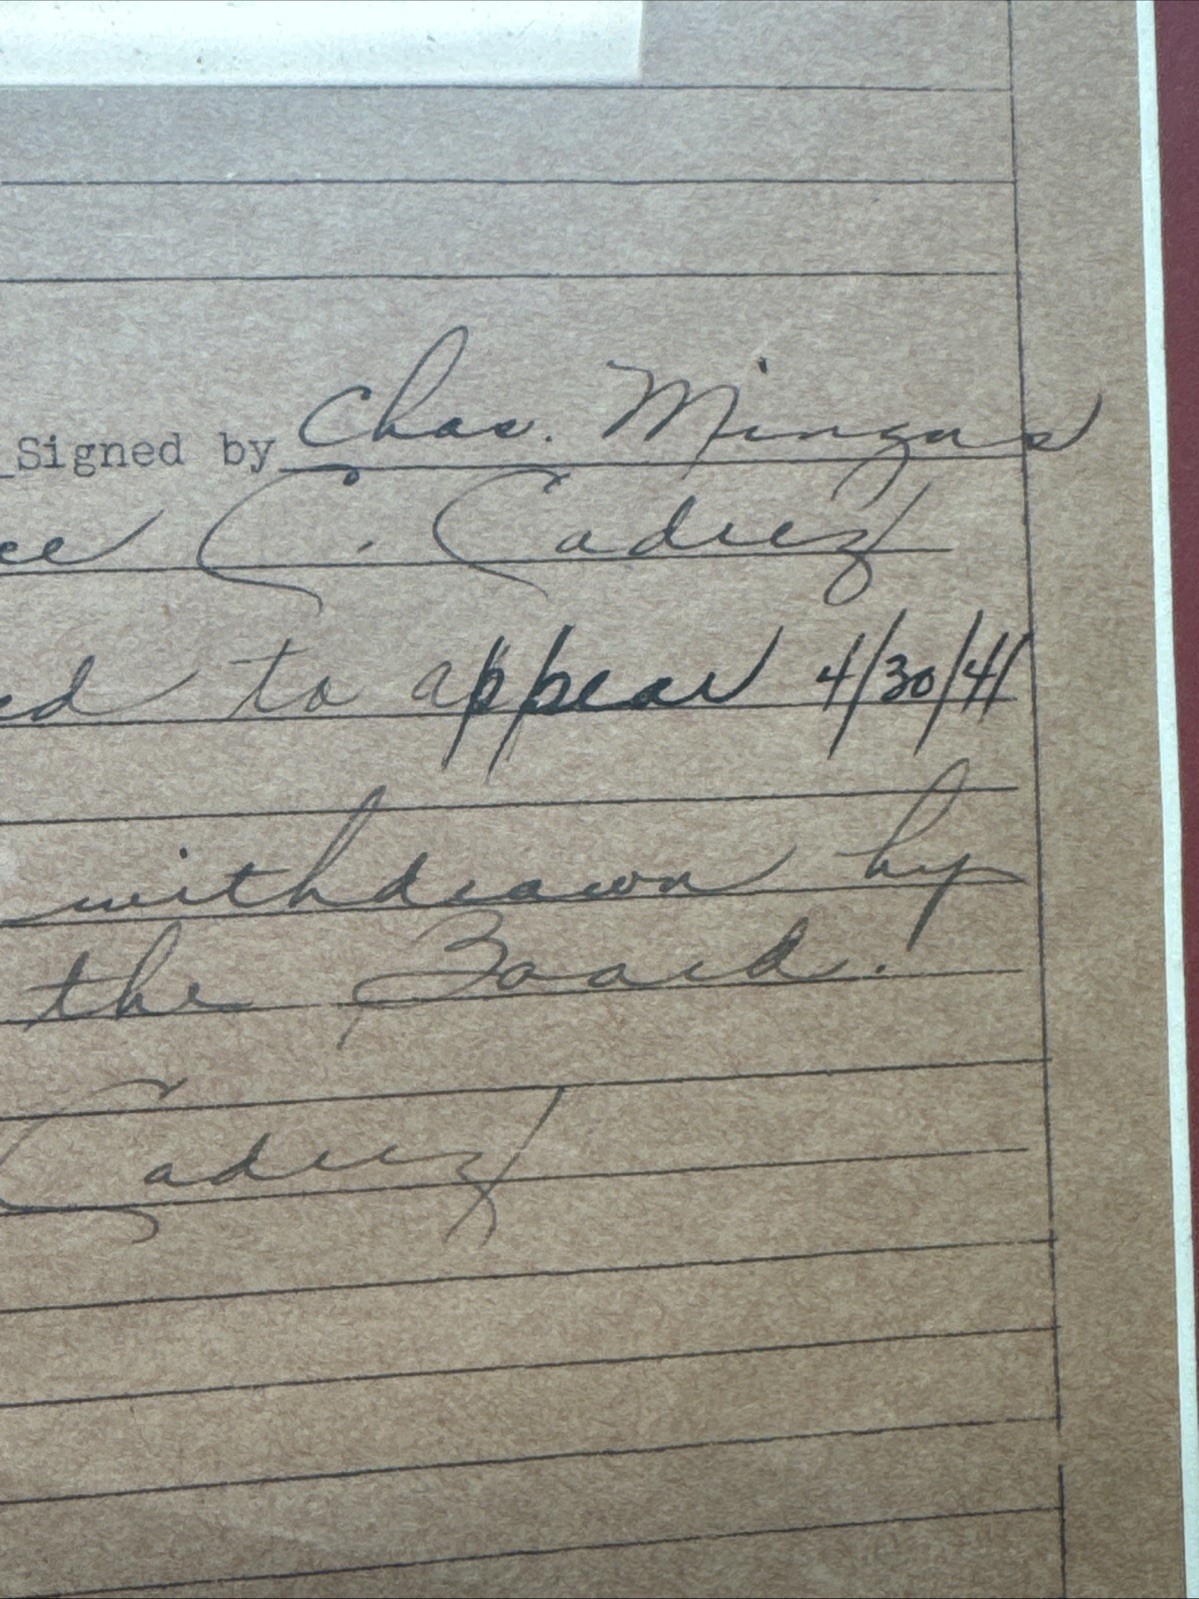 Signed by Chas. Mingus
ee C. Cadrez
ed to appear 4/30/41
withdrawn by
the Board.
Cadrez